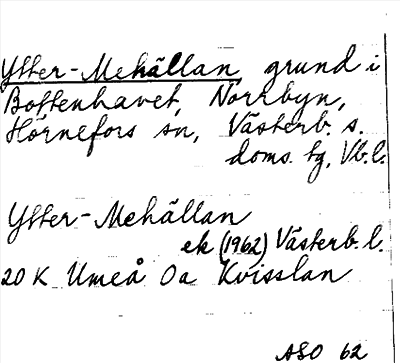 Ytter-Mehällan, grund i
Bottenhavet, Norrbyn,
Hörnefors sn, Västerb. s.
doms. tg, Vb.l.
Ytter-Mehällan
ek (1962) Västerb.l.
20 K Umeå 0a Kvisslan
ASO 62